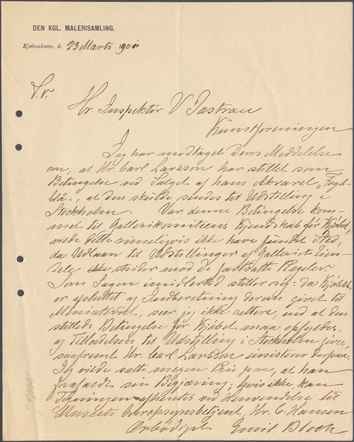 DEN KGL. MALERISAMLING.
Kjøbenhavn, d. 23 Marts 1900
Hr. Inspektør V Jastrau
Kunstforeningen
Jeg har modtaget Deres Meddelelse
om, at Hr. Carl Larsson har stillet som
Betingelse ved Salget af hans Akvarel,
at den skulde sendes til Udstilling i
Stockholm. Var denne Betingelse kom-
met til Gallerikomiteens Kundskab før Kjøbet,
vilde dette rimeligvis ikke have fundet Sted,
da Udlaan til Udstillinger af Galleriet
ikke med de fastsatte Regler
Som Sagen imidlertid stiller sig, da Kjøbet
er afsluttet og Indberetning derom givet til
Ministeriet, ser jeg ikke rettere, end at den
stillede Betingelse for Kjøbet maa opfyldes
og Tilladelsen til Udstilling i Stockholm gives,
saafremt Hr. Carl Larsson
Jeg vilde sætte megen Pris paa, at han
frafaldt sin Begjæring; hvis ikke kan
Tegningen ved Henvendelse til
Hr. C. Hansen
Ærbødigst Emil Bloch